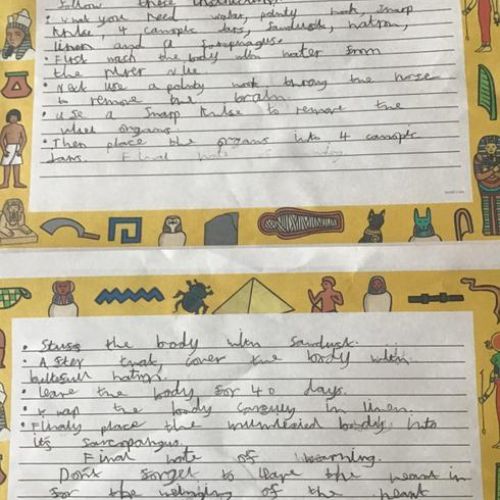 follow these instructions.
• what you need water, pointy hook, sharp
knife, 4 canopic jars, sawdusk, natron,
linen and a sarcophaguse
• First wash the body with water from
the river nile
• Next use a pointy hook throug the nose
to remove the brain.
• use a sharp knife to remove the
organs.
• Then place the organs into 4 canopic
Jars. Final note
• Stuff the body with sawdusk.
• After that, cover the body with
natron.
• leave the body for 40 days.
• wrap the body in linen.
• Finaly place the body into
its
Final note of warning.
Dont forget to leave the heart in
for the weighing of the heart